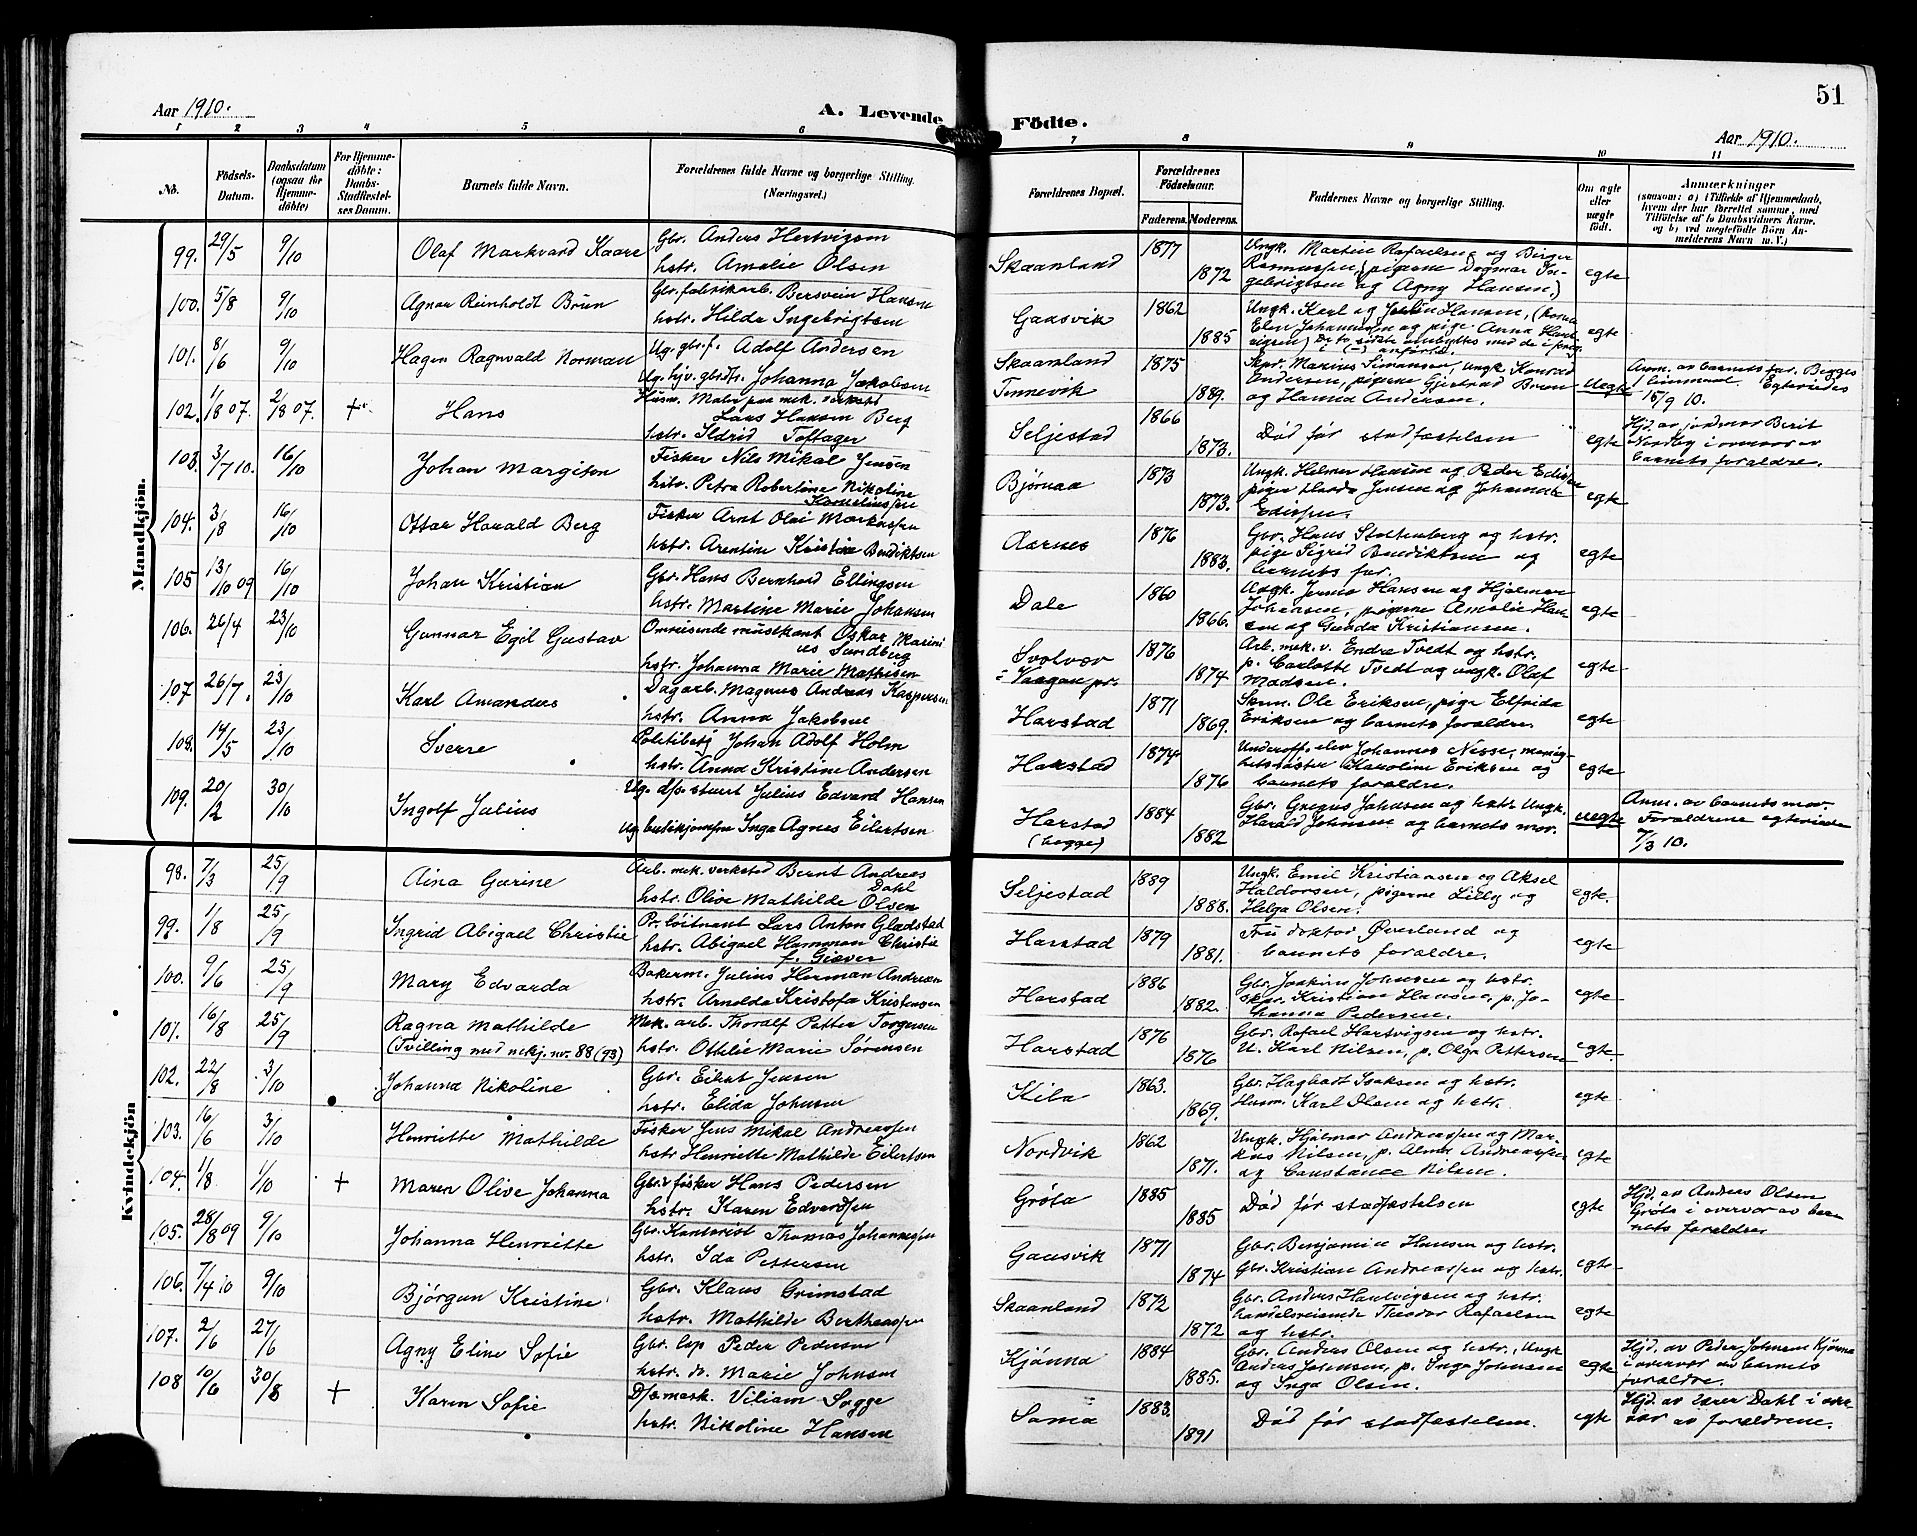 51
Aar 1910.
A. Levende Födte.
Aar 1910.
1 2 3 4 5 6 7 8 9 10 11
No.
Födsels-Datum.
Daabsdatum (ogsaa for Hjemme-döbte)
For Hjemme-döbte: Daabs-Stadfæstelses Datum.
Barnets fulde Navn.
Forældrenes fulde Navne og borgerlige Stilling. (Næringsvei.)
Forældrenes Bopæl.
Forældrenes Födselsaar.
Faderens. Moderens.
Faddernes Navne og borgerlige Stilling.
Om ægte eller uægte födt.
Anmærkninger
(saasom: a) i Tilfælde af Hjemmedaab, hvem der har forrettet samme, med Tilföielse af to Daabsvidners Navne, og b) ved uægtefödte Börn Anmelderens Navn m. V.)
Mandkjön.
99. 29/5 9/10 Olaf Markvard Kaare
Gbr. Anders Hertvigsen
hstr. Amalie Olsen
Skaanland 1877 1872
Ungk. Martin Rafaelsen og Birger
Rasmussen, pigerne Dagmar In-
gebrigtsen og Agny Hansen.
egte
100. 5/8 9/10 Agnar Reinholdt Brun
Gbr. fabrikarb. Bersvein Hansen
hstr. Hilda Ingebrigtsen
Gaasvik 1862 1885
Ungk. Karl og Hansen,
Johannesen og pige Anna
egte
101. 8/6 9/10 Hagen Ragnvald Norman
Ug. gbr.f. Adolf Andersen
Ug. hjv. gbrdtr. Johanna Jakobsen
Skaanland
Tennevik
1875 1889.
Skpr. Marius Simonsen, ungk. Konrad
Andersen, pigerne Gjertrud Bruun
og Hanna Andersen.
uegte
Anm. av barnets far. Begges
1 lemmaal. Egteviedes
15/9 10.
102. 1/8 07. 2/8 07. + Hans
Husm. Maler paa mek. verksted
Lars Hansen Berg
hstr. Ildrid Toftager
Seljestad 1866 1873.
Död før stadfæstelsen
egte
Hjd. av jordmor Berit
Nordby i overvær av
barnets forældre.
103. 3/7 10. 16/10 Johan Margiton
Fisker Nils Mikal Jensen
hstr. Petra Robertine Nikoline
Korneliussen
Bjørnaa 1873 1873.
Ungk. Helmer og Peder Edissen
piger Jensen og Johanna
Edissen.
egte
104. 3/8 16/10 Ottar Harald Berg
Fisker Arnt Olai Markussen
hstr. Arentine Kristine Bendiktsen
Aarnes 1876 1883.
Gbr. Hans Stoltenberg og hstr.
pige Sigrid Bendiktsen og
barnets far.
egte
105 13/10 09 16/10 Johan Kristian
Gbr. Hans Bernhard Ellingsen
hstr. Martine Marie Johansen
Dale 1860 1866.
Ungk. Hansen og Hjalmar
Johansen, pigerne Amalie Han-
sen og Gunda Kristiansen.
egte
106. 26/4 23/10 Gunnar Egil Gustav
Omreisende musikant Oskar Marini
us Sundberg
hstr. Johanna Marie Mathisen
Svolvær
i Vaagan pr.
1876 1874
Arb. mek. v. Endre Tvedt og hstr.
p. Carlotte Tvedt og ungk. Olaf
Madsen.
egte
107. 26/7. 23/10 Karl Amandus
Dagarb. Magnus Andreas Kaspersen
hstr. Anna Jakobsen
Harstad 1871 1869.
Skom. Ole Eriksen, pige Elfrida
Eriksen og barnets forældre.
egte
108. 14/5 23/10 Sverre
Politibetj Johan Adolf Holm
hstr. Anna Kristine Andersen
Harstad 1874 1876
Underoff. elev Johannes Nesse, menig-
hetssøster Karoline Eriksen og
barnets forældre.
egte
109. 20/2 30/10 Ingolf Julius
Ug. d/s. stuert Julius Edvard Hansen
ug. butikjomfru Inga Agnes Eilertsen
Harstad
(begge)
1884 1882
Gbr. Gregus Johnsen og hstr. Ungk.
Harald Johnsen og barnets mor.
uegte
Anm. av barnets mor.
Forældrene egteviede
7/3 10.
Kvindekjön
98. 7/3 25/9 Aina Gurine
Arb. mek. verksted Bernt Andreas
Dahl
hstr. Olive Mathilde Olsen
Seljestad 1889 1888.
Ungk. Emil Kristiansen og Aksel
Haldorsen, pigerne Lilly og
Helga Olsen.
egte.
99. 1/8 25/9 Ingrid Abigael Christie
Pr. løitnant Lars Anton Gladstad
hstr. Abigael Hammon Christie
f. Giæver
Harstad 1879 1881.
Fru doktor Øverland og
barnets forældre.
egte
100. 9/6 25/9 Mary Edvarda
Bakerm. Julius Herman Andreasen
hstr. Arnolda Kristofa Kristensen
Harstad 1886 1882.
Gbr. Joakim Johnsen og hstr.
skpr. Kristian Hansen, p. Jo-
hanna Pedersen.
egte
101. 16/8 25/9 Ragna Mathilde
(Tvilling med mkj. nr. 88 (93)
Mek. arb. Thoralf Petter Torgersen
hstr. Othilie Marie Sørensen
Harstad 1876 1876
Gbr. Rafael Hartvigsen og hstr.
U. Karl Nilsen, p. Olga Pettersen
egte
102. 22/8 3/10 Johanna Nikoline
Gbr. Eilert Jensen
hstr. Elida Johnsen
Kila 1863. 1869.
Gbr. Hagbart Isaksen og hstr.
Husm. Karl Olsen og hstr.
egte
103. 16/6 3/10 Henriette Mathilde
Fisker Jens Mikal Andreassen
hstr Henriette Mathilde Eilertsen
Nordvik 1862 1871.
Ungk. Hjalmar Andreassen og Mar-
kus Nilsen, p. Alma Andreassen
og Constance Nilsen.
egte
104. 1/8 1/10 + Maren Olive Johanna
Gbr. fisker Hans Pedersen
hstr. Karen Edvardsen
Grøta 1885 1885
Död før stadfæstelsen
egte
Hjd. av Anders Olsen
Grøta i overvær av bar-
nets forældre.
105. 28/8 09 9/10 Johanna Henriette
Gbr. Kontorist Thomas Johannessen
hstr. Ida Pettersen
Gausvik 1871 1874
Gbr. Benjamin Hansen og hstr.
Gbr. Kristian Andreassen og hstr.
egte
106. 7/4 10 9/10 Bjørgun Kristine
Gbr. Klaus Grimstad
hstr. Mathilde Bertheussen
Skaanland 1872 1872
Gbr. Anders Hartvigsen og hstr.
handelsreisende Theodor Rafaelsen
og hstr.
egte
107. 2/6 27/6 Agny Eline Sofie
Gbr. Lap Peder Pedersen
hstr. do. Marie Johnsen
Kjønna 1884 1885.
Gbr. Anders Olsen og hstr., Ungk
Anders Johnsen, p. Inga Johnsen
og Inga Olsen.
egte
Hjd. av Peder Johnsen Kjønna
i overvær av barnets
forældre.
108 10/6 30/8 + Karen Sofie
D/s. mask. Viliam Sogge
hstr. Nikoline Hansen
Sama 1883. 1891
Död før stadfæstelsen.
egte
Hjd. av lærer Dahl i over-
vær av forældrene.